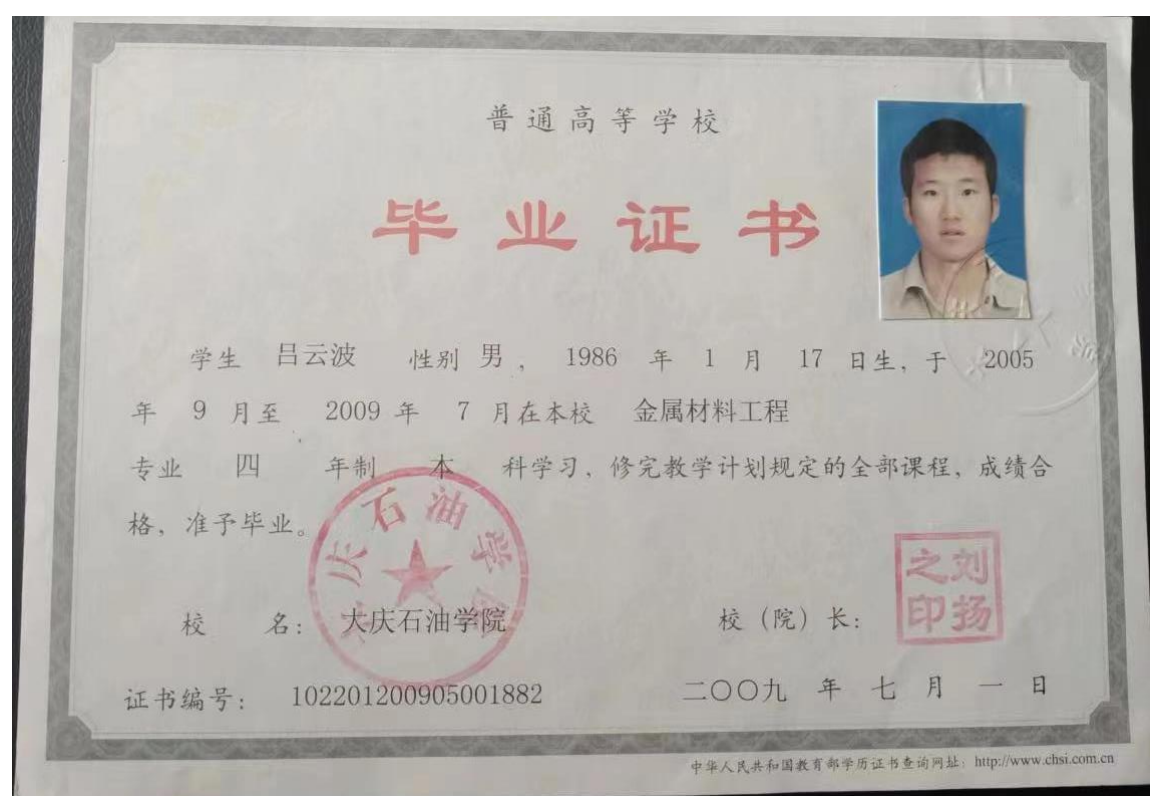 普通高等学校
毕业证书
学生 吕云波 性别 男， 1986 年 1 月 17 日生，于 2005
年 9 月至 2009 年 7 月在本校 金属材料工程
专业 四 年制 本 科学习，修完教学计划规定的全部课程，成绩合
格，准予毕业。
大庆石油学院
校 名： 大庆石油学院
校（院）长：
刘扬之印
证书编号： 102201200905001882
二〇〇九 年 七 月 一 日
中华人民共和国教育部学历证书查询网址：http://www.chsi.com.cn